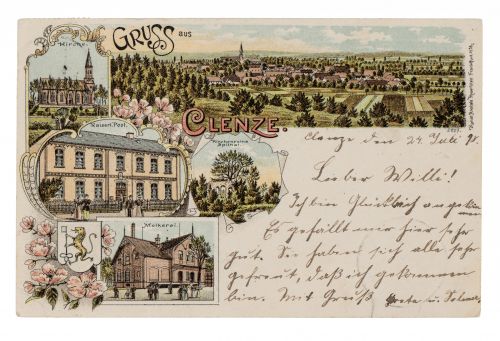 Kirche.
GRUSS AUS
CLENZE.
Kaiserl. Post.
Molkerei.
Clenze den 24 Juli 98.
Lieber Willi!
Ich bin Glücklich angekom
Es gefällt mir hier sehr
gut. Sie haben sich alle sehr
gefreut, daß ich gekommen
bin. Mit Gruß Grete u.